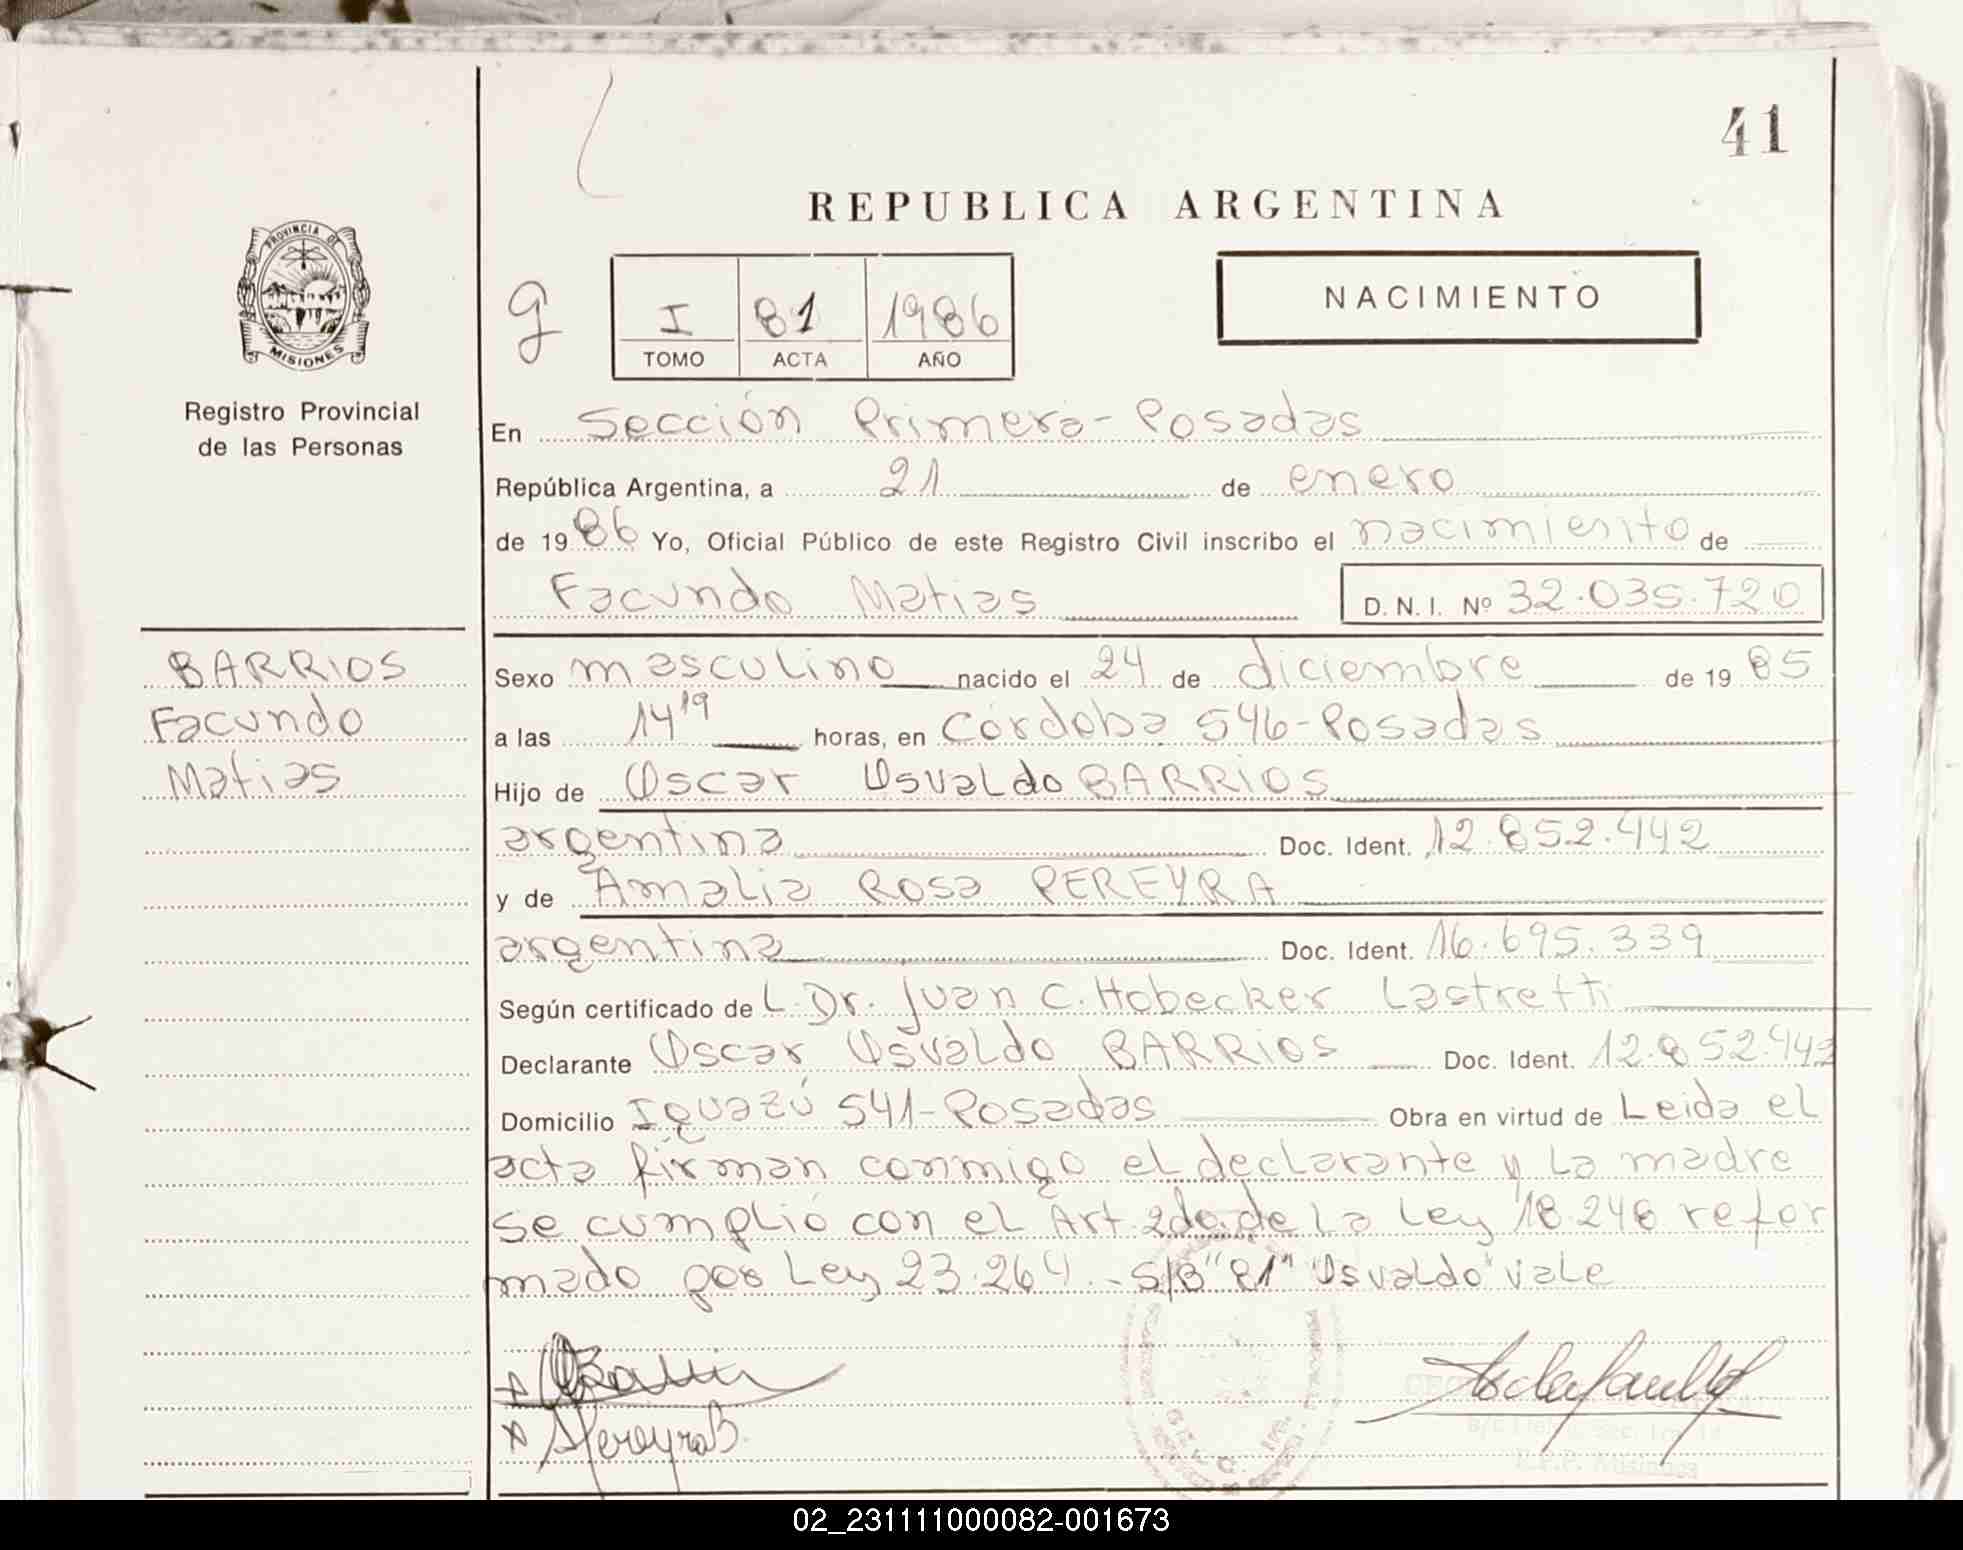 41
REPUBLICA ARGENTINA
PROVINCIA DE
MISIONES
Registro Provincial
de las Personas
g
I 81 1986
TOMO ACTA AÑO
NACIMIENTO
En Sección Primera - Posadas
República Argentina, a 21 de enero
de 1986 Yo, Oficial Público de este Registro Civil inscribo el nacimiento de
Facundo Matias D. N. I. Nº 32.035.720
BARRIOS
Facundo
Matias
Sexo masculino nacido el 24 de diciembre de 1985
a las 14 19 horas, en Córdoba 546-Posadas
Hijo de Oscar Osvaldo BARRIOS
argentina Doc. Ident. 12.852.442
y de Amalia Rosa PEREYRA
argentina Doc. Ident. 16.695.339
Según certificado de L. Dr. Juan C. Hobecker Lastretti
Declarante Oscar Osvaldo BARRIOS Doc. Ident. 12.852.442
Domicilio Iguazú 541-Posadas Obra en virtud de Leida el
acta firman conmigo el declarante y la madre
se cumplió con el Art. 2do. de la Ley 18.248 refor
mado por Ley 23.264.- S/B "81" "Osvaldo" vale
02_231111000082-001673